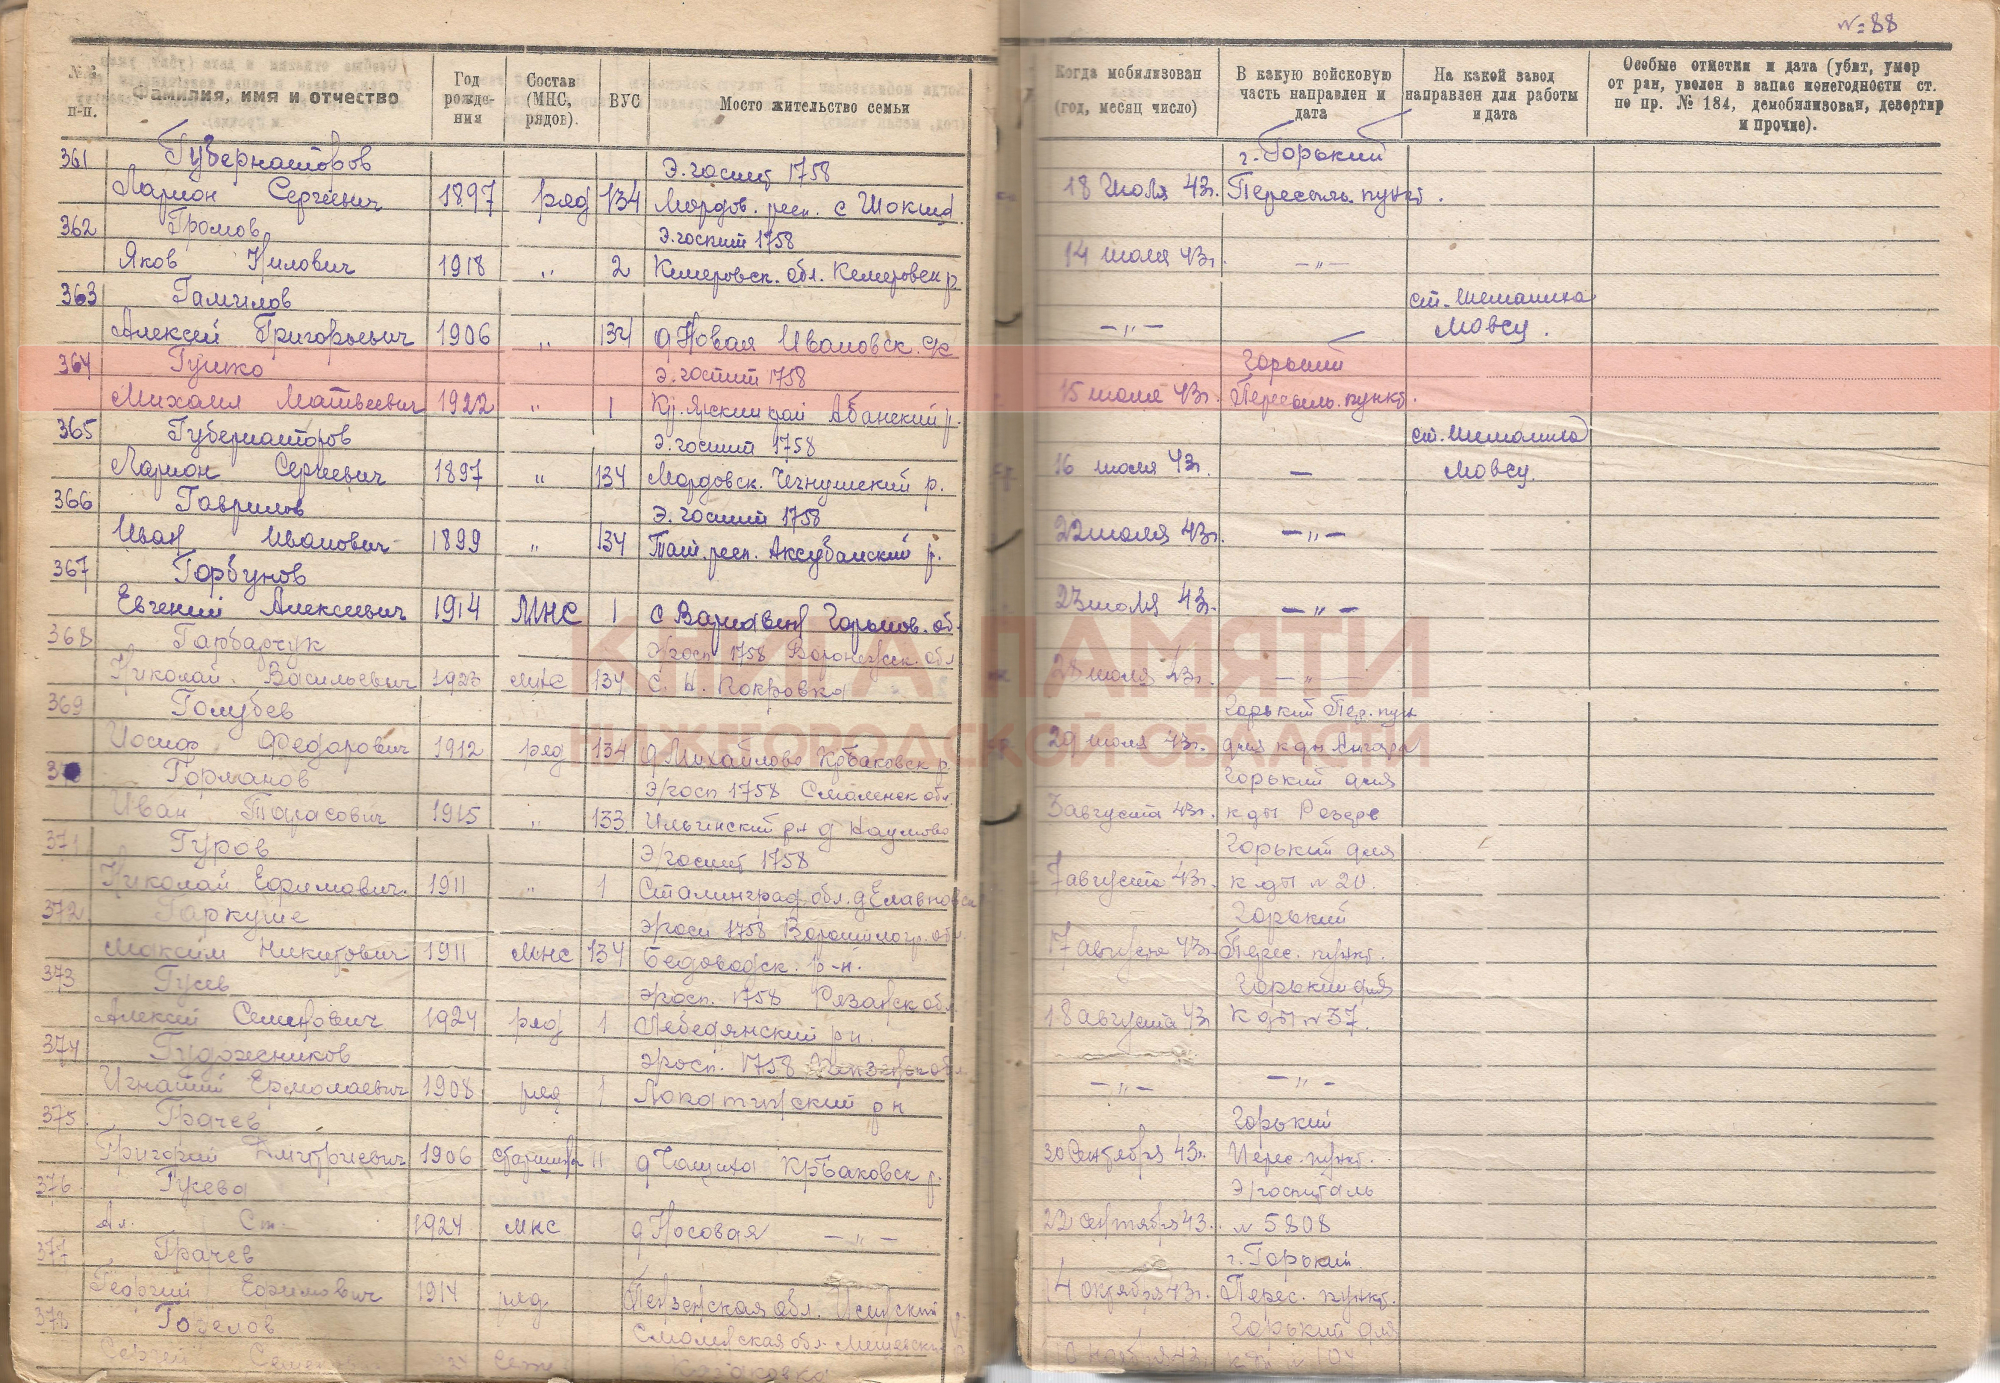 № 88
№№ п-п.
Фамилия, имя и отчество
Год рожде-ния
Состав (МНС, рядов).
ВУС
Мосто жительство семьи
Когда мобилизован (год, месяц число)
В какую войсковую часть направлен и дата
На какой завод направлен для работы и дата
Особые отметки и дата (убит, умер от ран, уволен в запас понегодности ст. по пр. № 184, демобилизован, дезертир и прочие).
361 Губернаторов Э. госпит 1758 г. Горький
Ларион Сергеевич 1897 ряд 134 Мордов. респ. с Шокша 18 Июля 43г. Пересыль. пункт.
362 Громов Э. госпит 1758
Яков Нилович 1918 „ 2 Кемеровск. обл. Кемеровск р. 14 июля 43г. —„—
363 Гамилов ст. Шеманиха
Алексей Григорьевич 1906 „ 134 д Новая Ивановск. —„— Мовсу.
364 Гушко Э. госпит 1758 Горький
Михаил Матвеевич 1922 „ 1 Кр. Ярский край Абанский р. 15 июля 43г. Пересыль. пункт.
365 Губернаторов Э. госпит 1758 ст. Шеманиха
Ларион Сергеевич 1897 „ 134 Мордовск. р. 16 июля 43г. — Мовсу.
366 Гаврилов Э. госпит 1758
Иван Иванович 1899 „ 134 Тат. респ. Аксубаевский р. 22 июля 43г. —„—
367 Горбунов
Евгений Алексеевич 1914 МНС 1 с Варнавин Горьков. об. 23 июля 43г. —„—
368 Гамбарчук Э/госп 1758 Воронежск. обл
Николай Васильевич 1923 МНС 134 с. Н. Покровка 28 июля 43г. —„—
369 Голубев Горький Пер. пун
Иосиф Федорович 1912 ряд 134 д Михайлово Кр Баковск р 29 июля 43г. для кдп Ангара
370 Горманов Э/госп 1758 Смоленск обл. Горький для
Иван Тарасович 1915 „ 133 Ильинский рн д Наумово 3 августа 43г. кдп Резерв
371 Гуров Э/госпит 1758 Горький для
Николай Ефимович. 1911 „ 1 Сталинград. обл. 7 августа 43г. кдп № 20.
372 Гаркуше Э/госп 1758 Ворошилогр. обл Горький
Максим Никитович 1911 МНС 134 Беловодск. р-н. 17 августа 43г Перес. пункт.
373 Гусев Э/госп. 1758 Рязанск обл. Горький для
Алексей Семенович 1924 ряд 1 Лебедянский рн. 18 августа 43 Кдп № 37.
374 Гудожесников Э/госп. 1758 Пензенск обл
Игнатий Ермолаевич 1908 ряд 1 рн —„— —„—
375 Грачев Горький
Григорий Дмитриевич 1906 старшина 11 д Чащиха Кр Баковск р. 30 Сентября 43г. Перес. пункт.
376 Гусева Э/госпиталь
Ал. Ст. 1924 МНС д Носовая —„— 22 сентября 43. № 5808
377 Грачев г. Горький
Георгий Ефимович 1914 ряд. Пензенская обл. 4 октября 43г. Перес. пункт.
378 Смоленская обл. Горький для
Сергей
КНИГА ПАМЯТИ
НИЖЕГОРОДСКОЙ ОБЛАСТИ